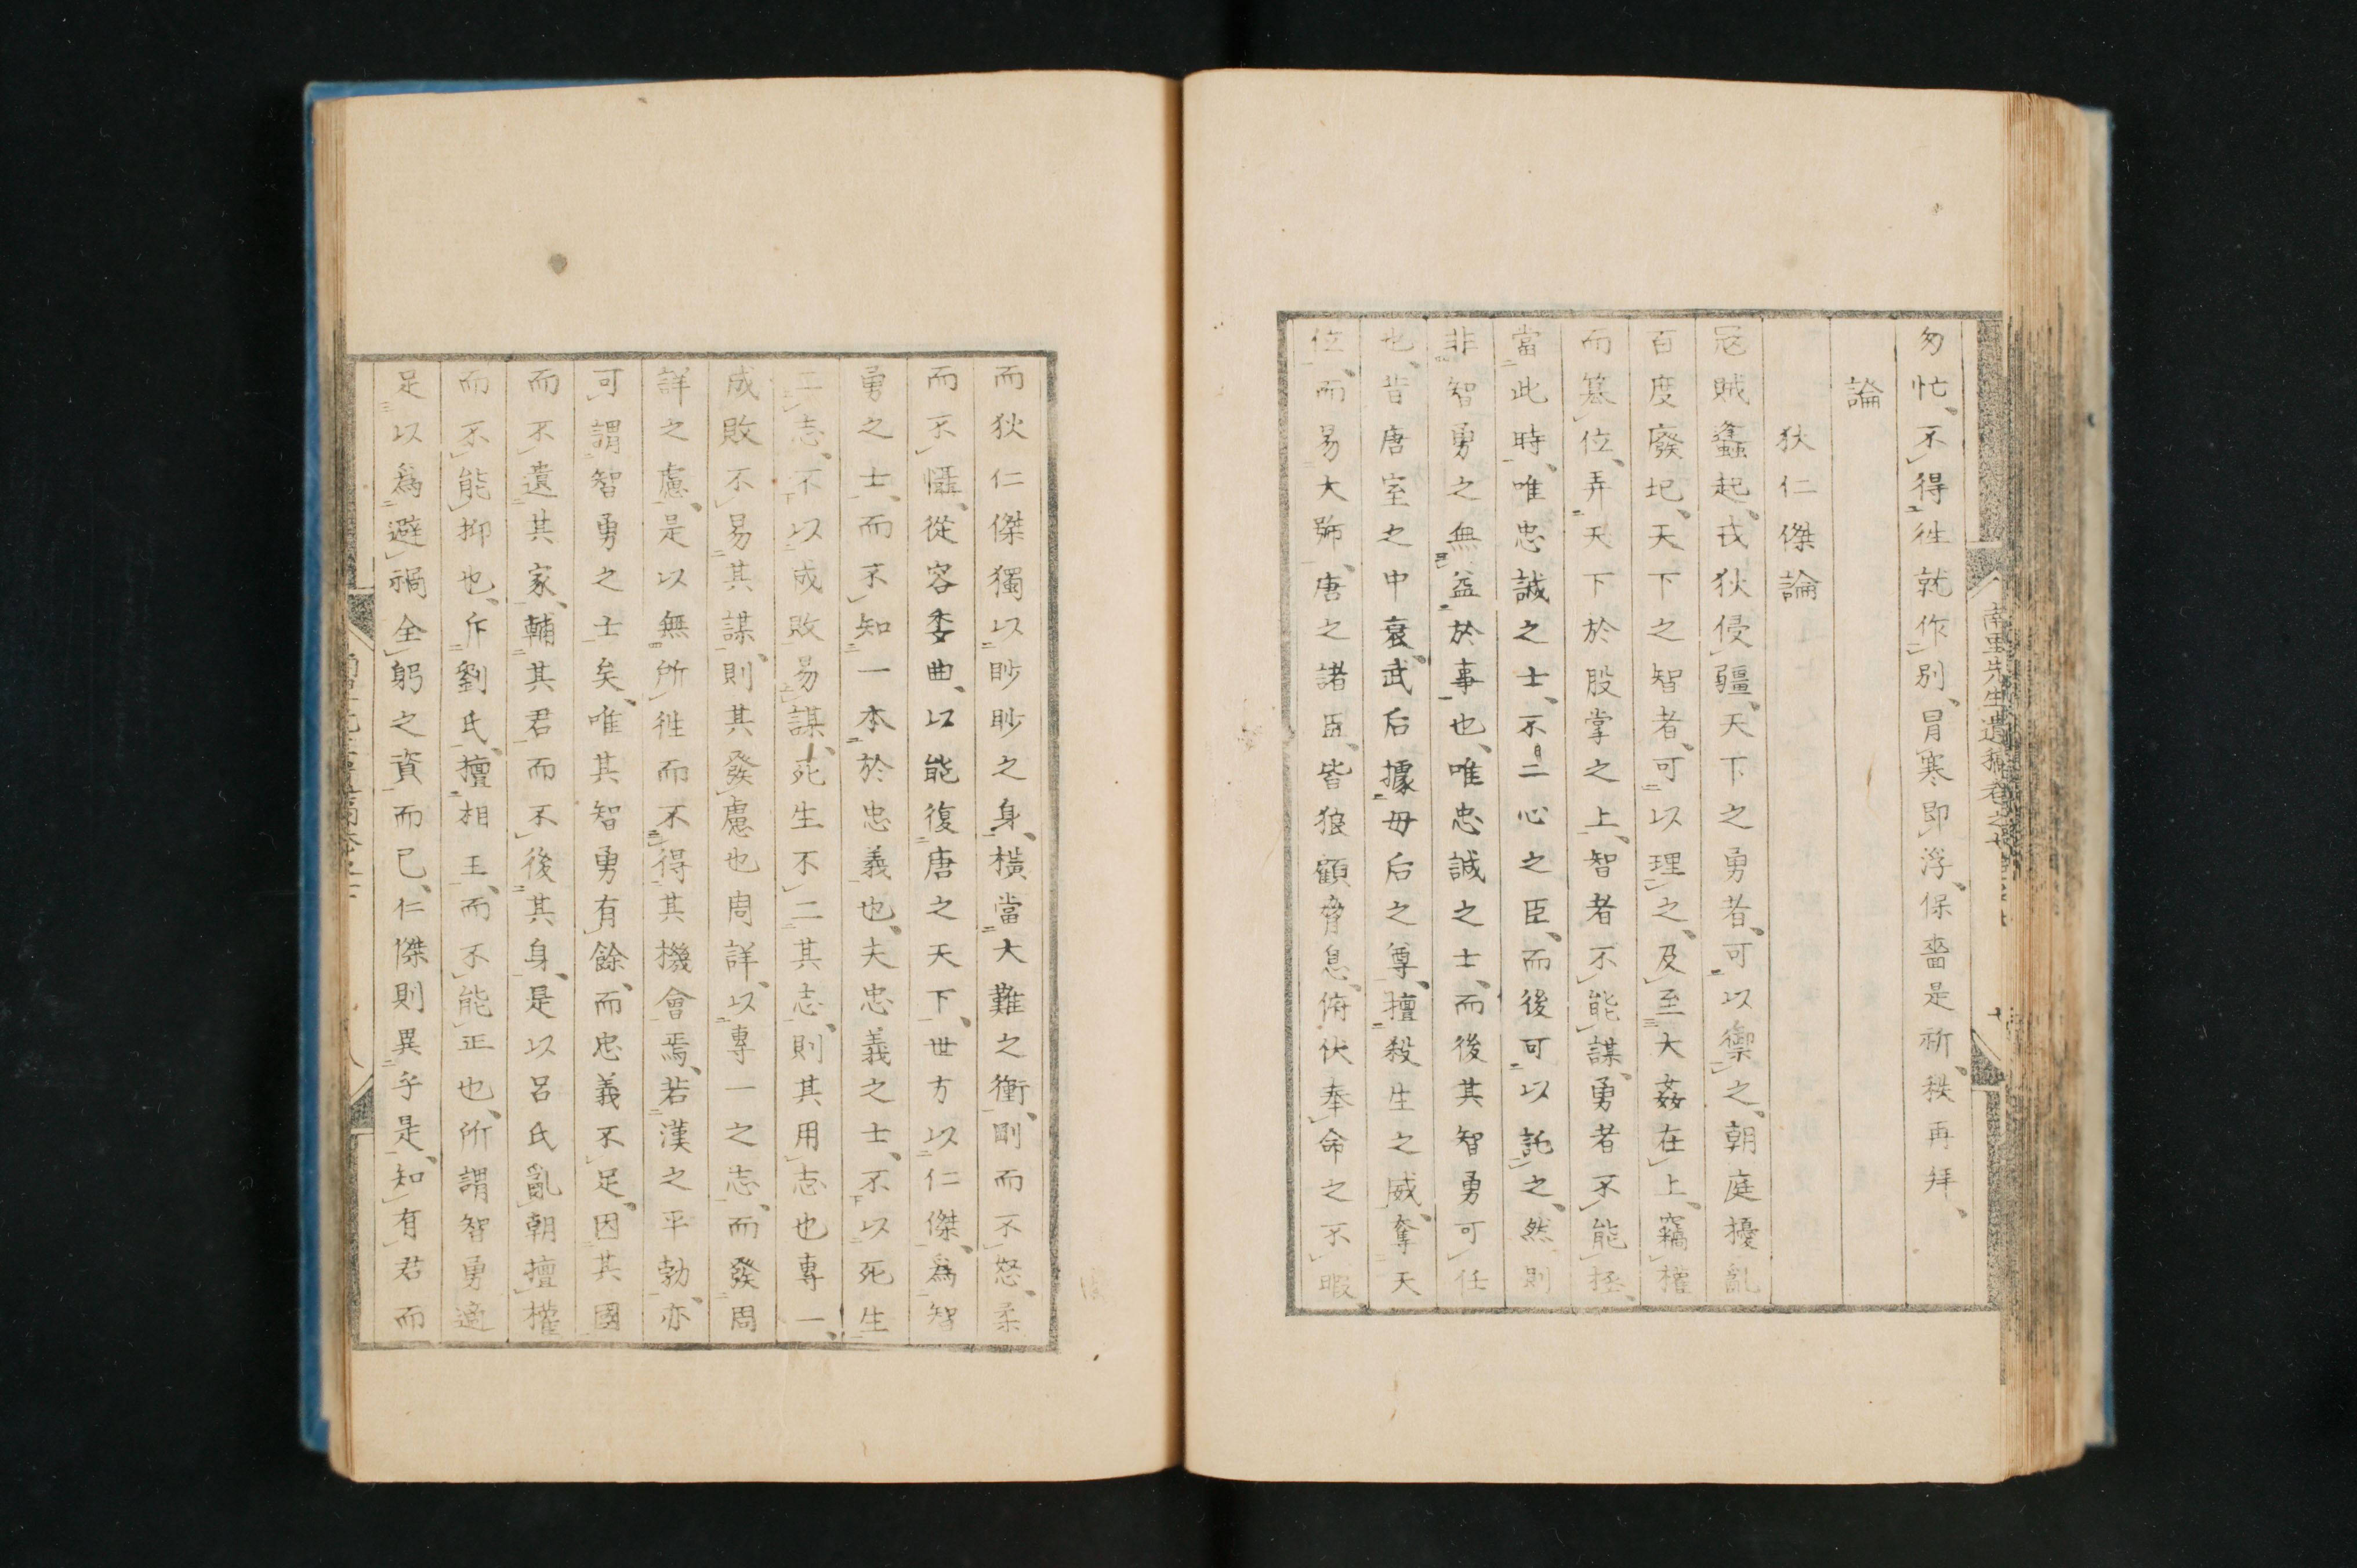 南里先生遺稿卷之七
匆忙、不得徃就作別、冒寒即浮、保嗇是祈、秩再拜、
論
狄仁傑論
冦賊蠭起、戎狄侵疆、天下之勇者、可以禦之、朝庭擾亂
百度廢圮、天下之智者、可以理之、及至大姦在上、竊權
而簒位、弄天下於股掌之上、智者不能謀、勇者不能拯、
當此時、唯忠誠之士、不二心之臣、而後可以託之、然則
非智勇之無益於事也、唯忠誠之士、而後其智勇可任
也、昔唐室之中衰、武后據毋后之尊、擅殺生之威、奪天
位、而易大號、唐之諸臣、皆狼顧脅息、俯伏奉命之不暇
而狄仁傑獨以眇眇之身、橫當大難之衝、剛而不怒、柔
而不懾、從容委曲、以能復唐之天下、世方以仁傑、爲智
勇之士、而不知一本於忠義也、夫忠義之士、不以死生
二志、不以成敗易謀、死生不二其志、則其用志也專一、
成敗不易其謀、則其發慮也周詳、以專一之志、而發周
詳之慮、是以無所徃而不得其機會焉、若漢之平勃、亦
可謂智勇之士矣、唯其智勇有餘、而忠義不足、因其國
而不遺其家、輔其君而不後其身、是以呂氏亂朝擅權
而不能抑也、斥劉氏、擅相王、而不能正也、所謂智勇適
足以爲避禍全躬之資而已、仁傑則異乎是、知有君而